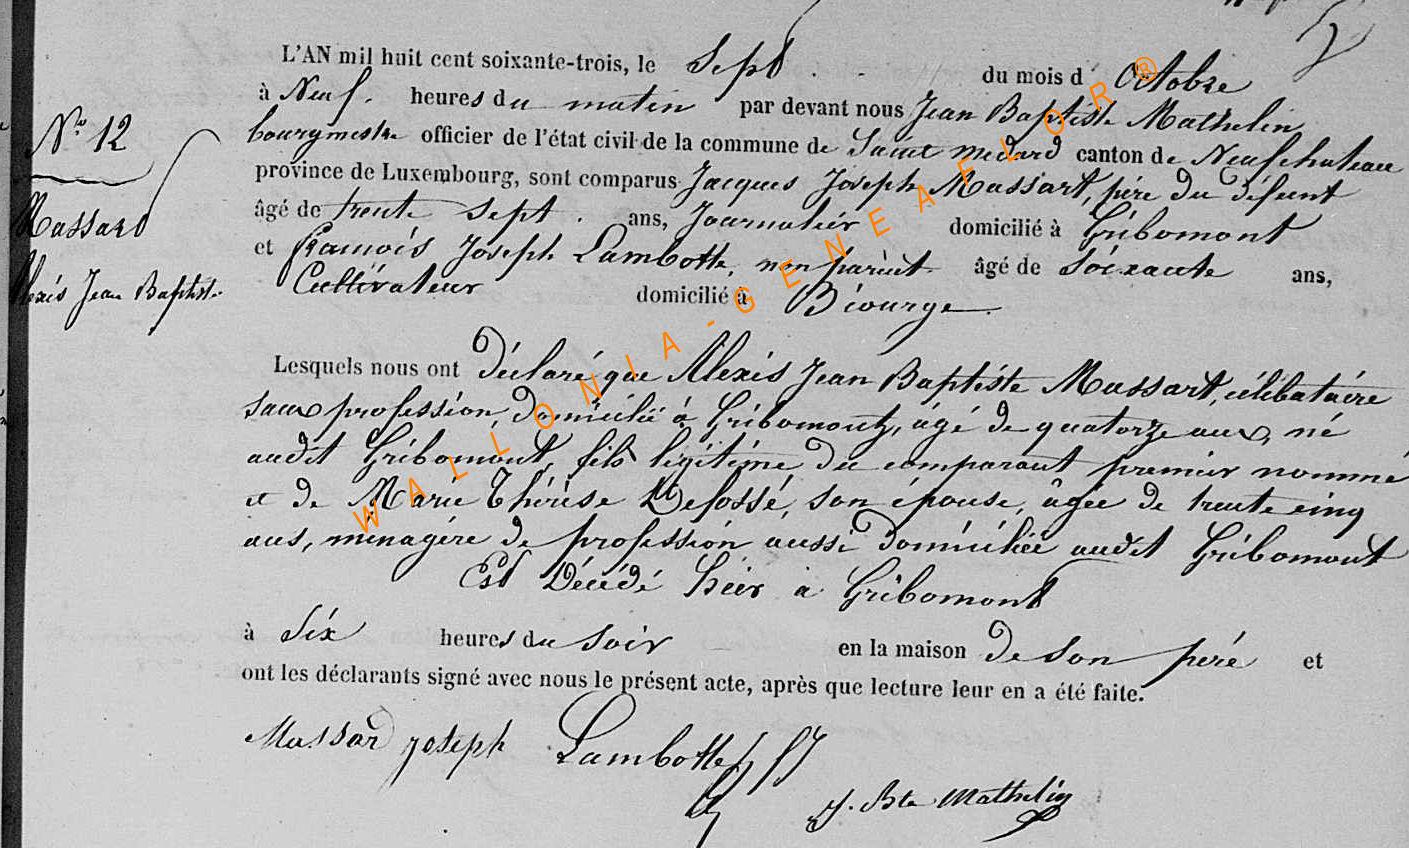 L'AN mil huit cent soixante-trois, le Sept du mois d' Octobre
à Neuf heures du matin par devant nous Jean Baptiste Mathelin
N° 12
bourgmestre officier de l'état civil de la commune de Saint médard canton de Neufchateau
province de Luxembourg, sont comparus Jacques Joseph Massart, père du défunt
Massard
âgé de trente sept ans, Journalier domicilié à Gribomont
et François Joseph Lambotte, non parent âgé de Soixante ans,
Alexis Jean Baptiste
Cultivateur domicilié à Biourge
Lesquels nous ont déclaré que Alexis Jean Baptiste Massart, célibataire
sans profession, domicilié à Gribomont, âgé de quatorze ans, né
audit Gribomont, fils légitime du comparant premier nommé
et de Marie Thérèse Defossé, son épouse, âgée de trente cinq
ans, ménagère de profession aussi domiciliée audit Gribomont
Est décédé hier à Gribomont
à Six heures du Soir en la maison de son père et
ont les déclarants signé avec nous le présent acte, après que lecture leur en a été faite.
Massard joseph Lambotte fJ
J. Bte Mathelin
WALLONIA-GENEAFLOR®